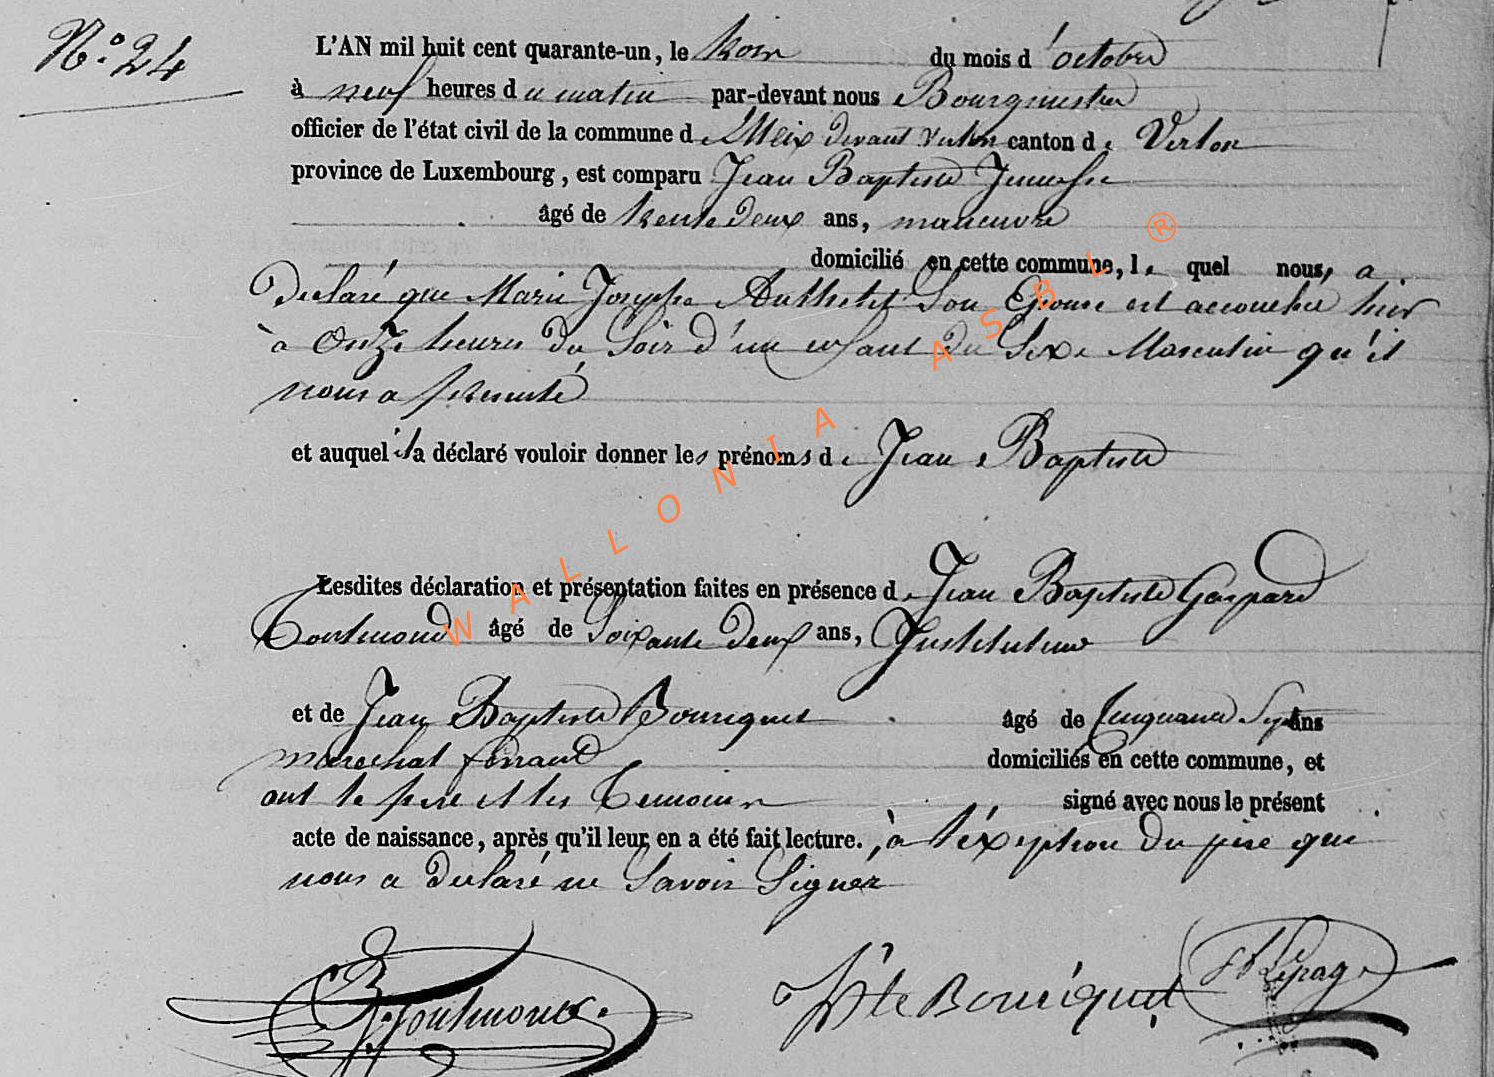 N.° 24
L'AN mil huit cent quarante-un, le trois du mois d'octobre
à neuf heures du matin par-devant nous Bourgmestre
officier de l'état civil de la commune de Meix devant virton canton de Virton
province de Luxembourg, est comparu Jean Baptiste
âgé de trente deux ans, manœuvre
domicilié en cette commune, lequel nous, a
déclaré que Marie Josephe son Epouse est accouchée hier
à onze heures du soir d'un enfant du sexe Masculin qu'il
nous a présenté
et auquel il a déclaré vouloir donner les prénoms de Jean Baptiste
Lesdites déclaration et présentation faites en présence de Jean Baptiste Gaspard
âgé de soixante deux ans, Instituteur
et de Jean Baptiste Bouriquet âgé de cinquante sept ans
marechal ferrant domiciliés en cette commune, et
ont le père et les témoins signé avec nous le présent
acte de naissance, après qu'il leur en a été fait lecture., à l'éxeption du père qui
nous a déclaré ne savoir signer
JBte Bouriquet Lepage
WALLONIA ASBL ®